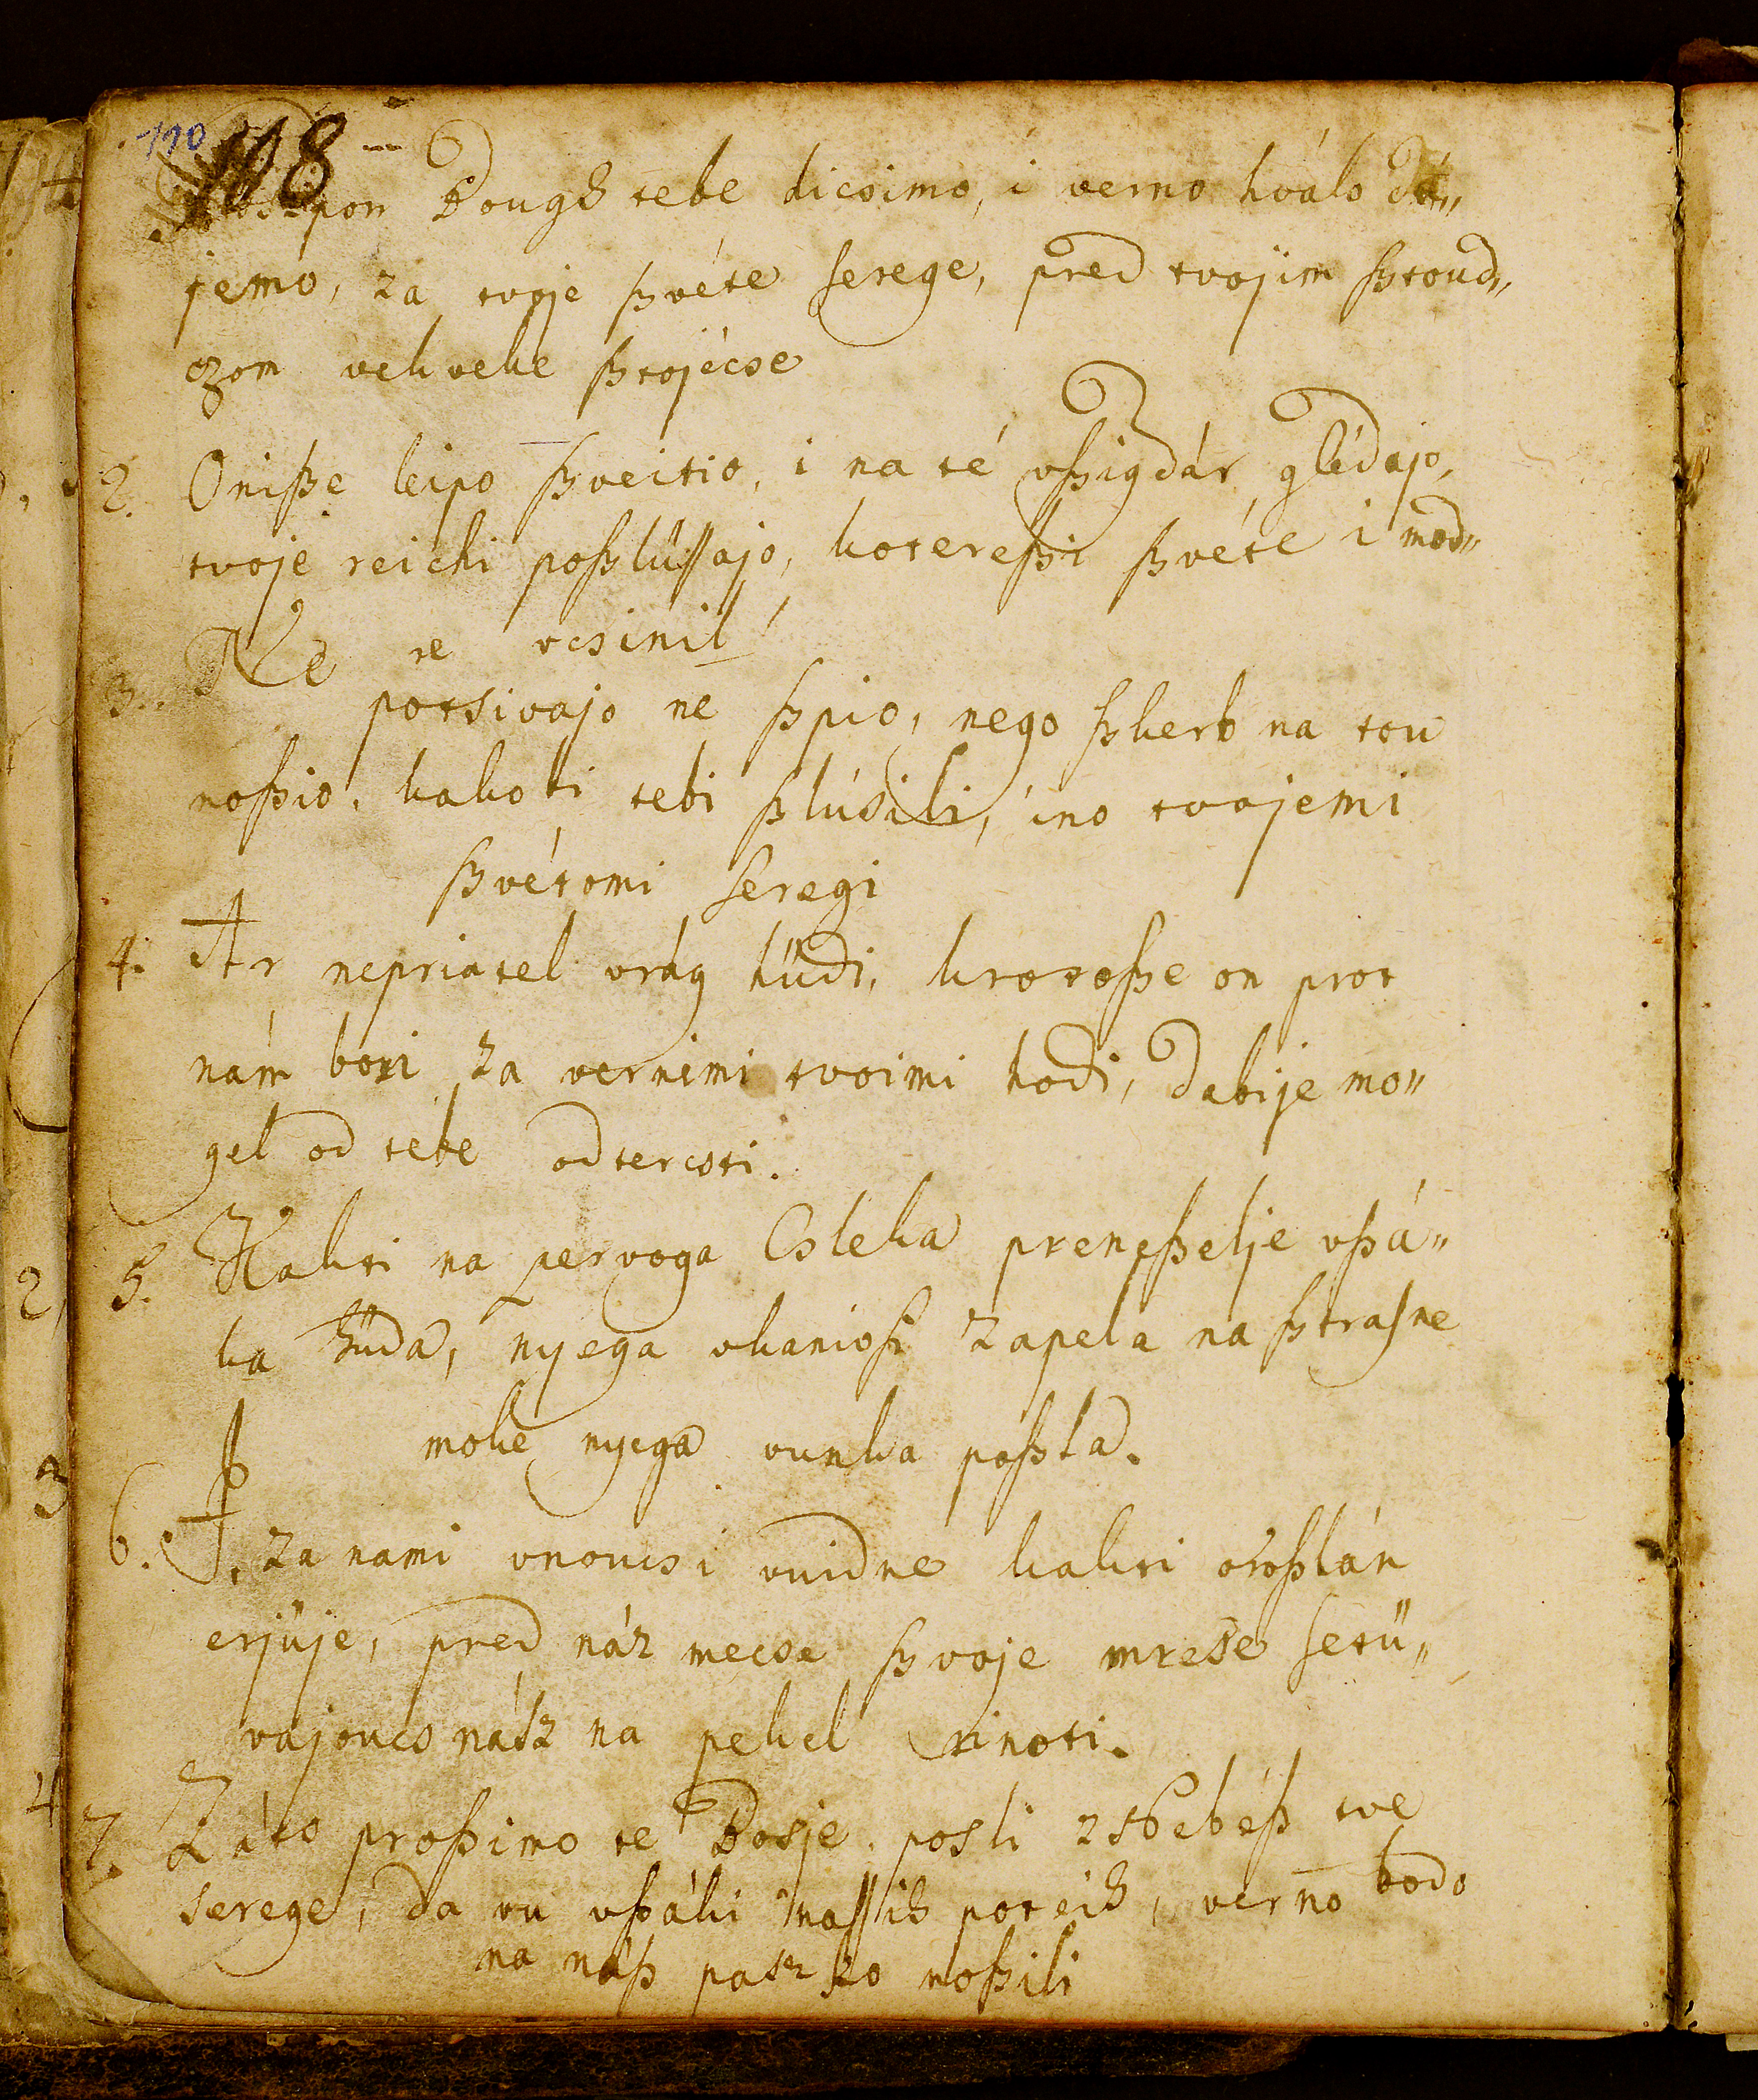 110
118
Bough tebe dicsimo, i verno hválo dá„
jemo, za tvoje ßvéte serege, pred tvojim ßtoud„
czom vekveke ßtojécse
2. Oniße leipo ßveitio, i na té vßigdár glédajo,
tvoje reichi poßlüssajo, htereßi ßvéte i mod„
3. Ne re vcsinil
potsivajo ne ßpio, nego ßkerb na tou
noßio, kakobi tebi ßlúsili, ino tvojemi
ßvétomi seregi
4. Ar nepriatel vrág hüdi, krotoße on prot
nám bori za vernimi tvoimi hodi, dabije mo„
gel od tebe odtercsti.
5. Kakti na pervoga Csleka preneßelje vßá„
ka hüda, nyega vkanioßi zapela na ßtrasne
moke nyega vunka poßla.
6. I. za nami vnoucsi vuidne kakti oroßlán
erjuje, pred náz mecse ßvoje mrese setü„
vajoucs nász na pekel rinoti.
7. Záto proßimo te Bosje posli z Nebéß tve
serege, da vu vßáki nassih poteih, verno bodo
na náß paszko noßili
2
3
4